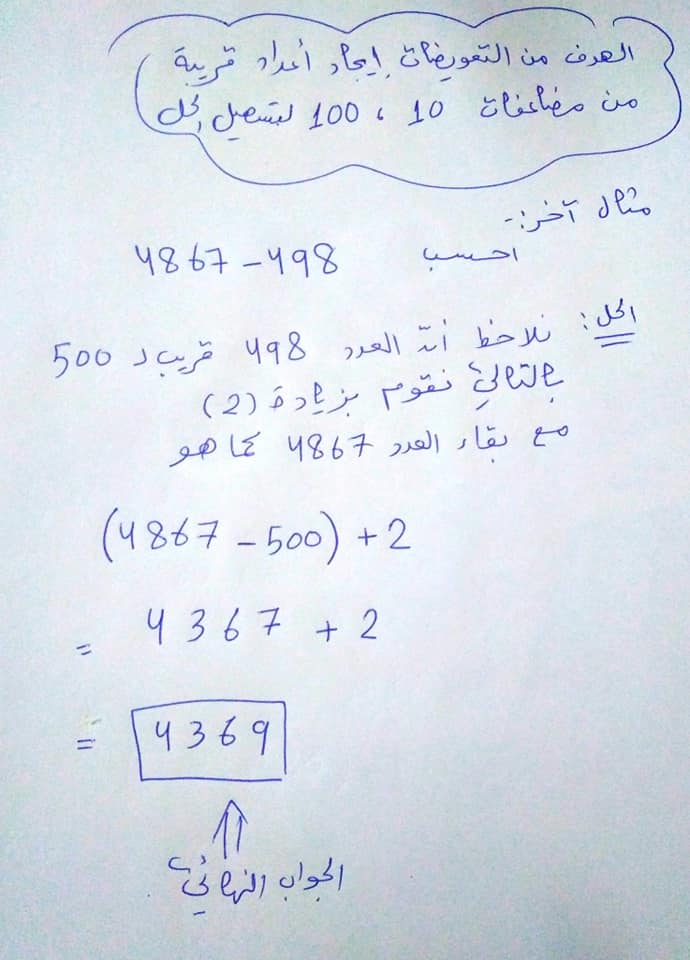 الهدف من التعويضات إيجاد أعداد قريبة
من مضاعفات 10 ، 100 لتسهيل الحل
مثال آخر:-
احسب 4867 - 498
الحل: نلاحظ أنّ العدد 498 قريب لـ 500
بالتالي نقوم بزيادة (2)
مع بقاء العدد 4867 كما هو
(4867 - 500) + 2
= 4367 + 2
= 4369
الجواب النهائي